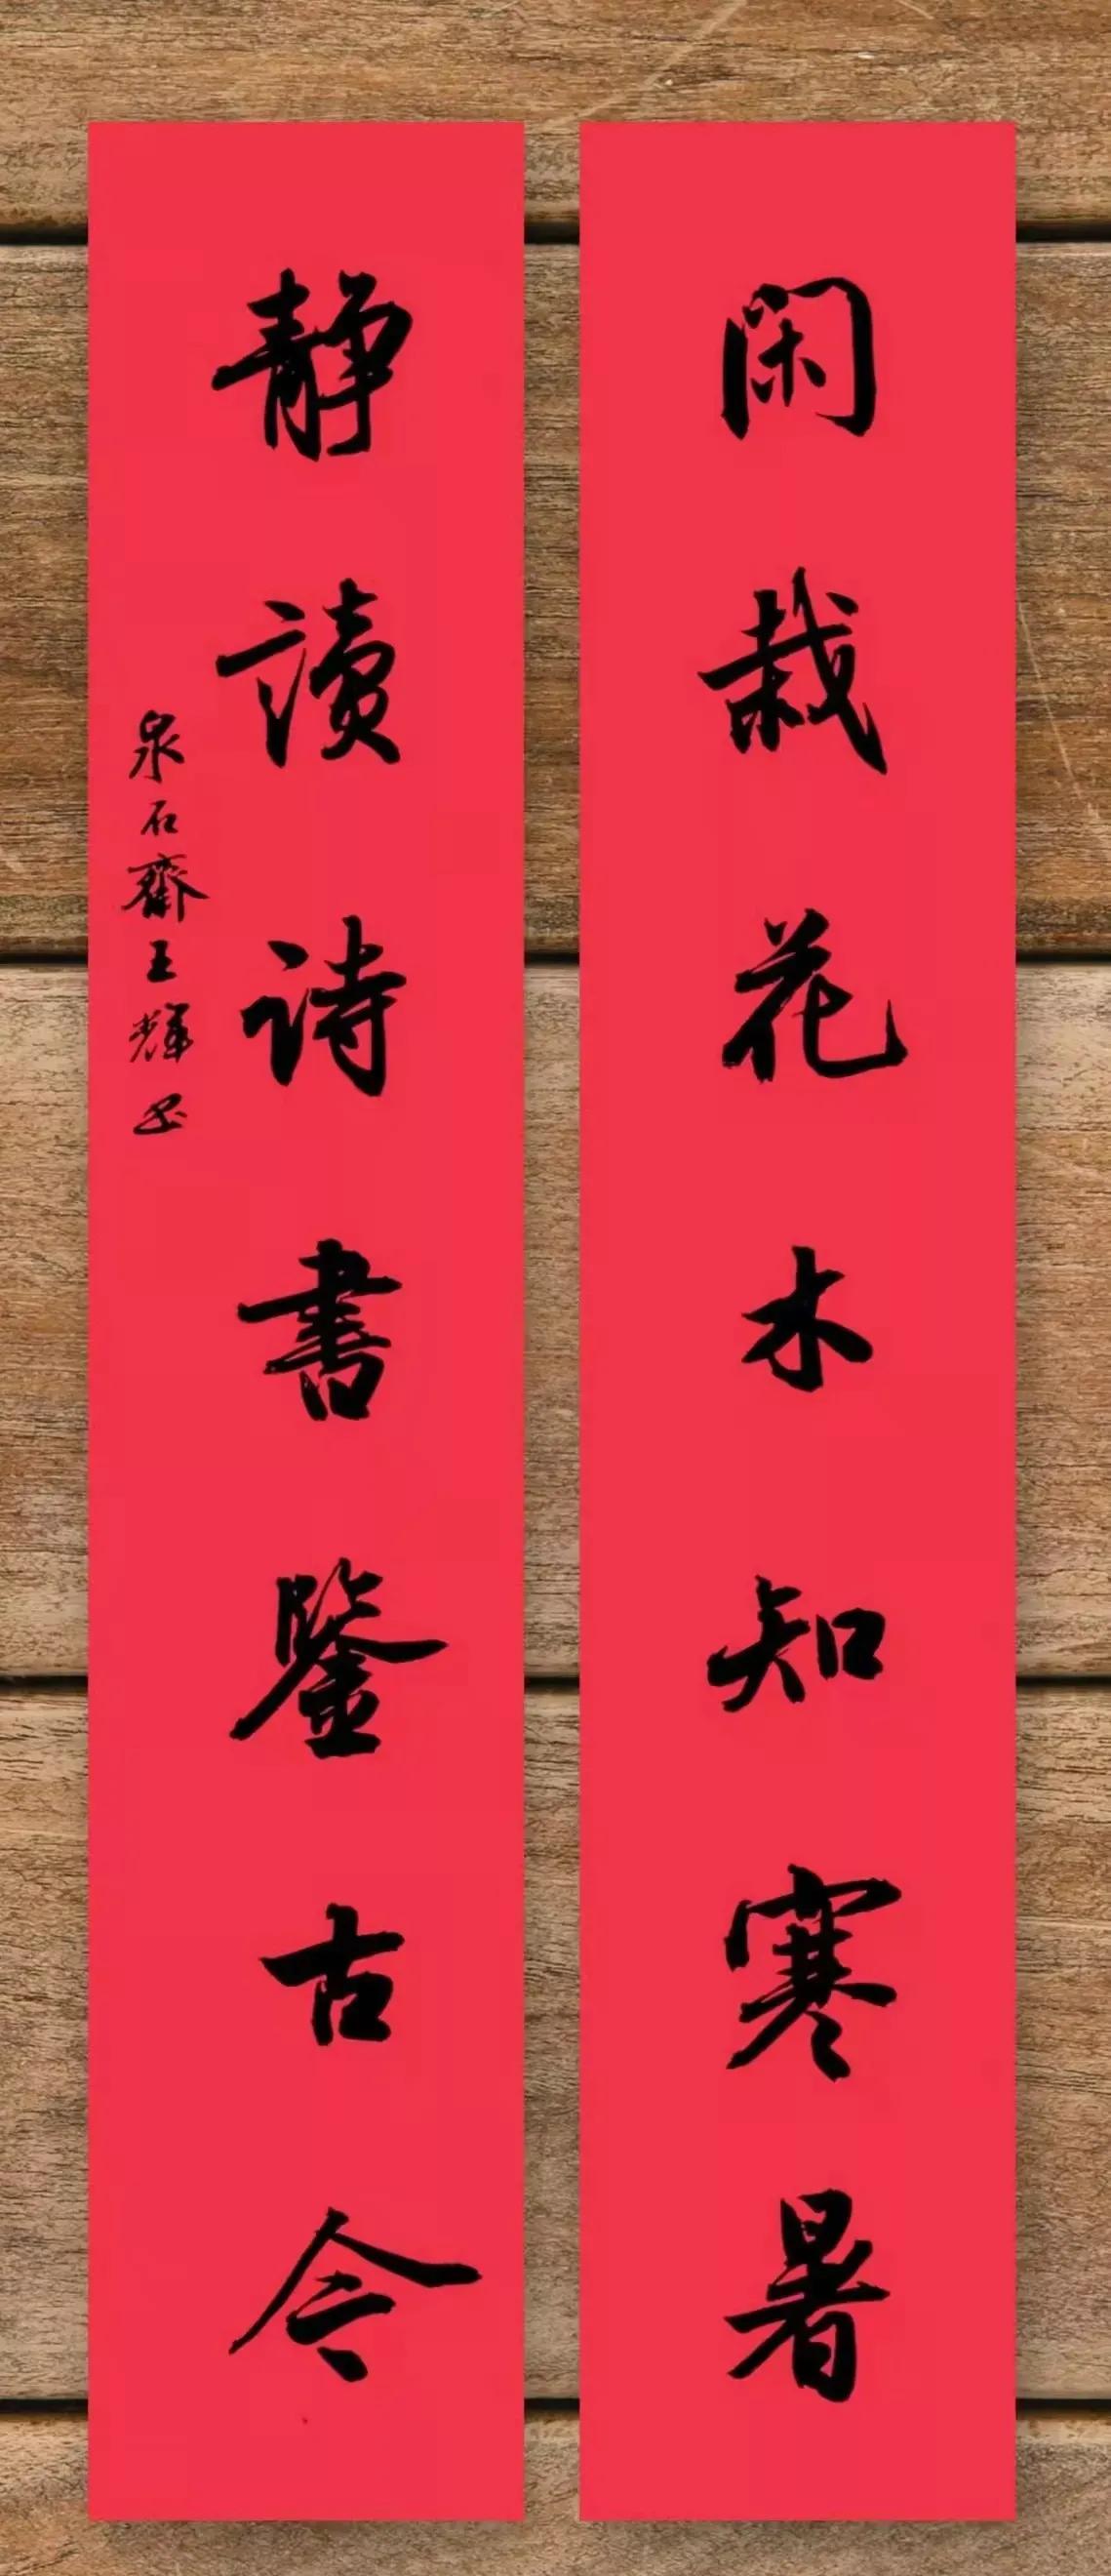 閑栽花木知寒暑
靜讀詩書鑒古今
泉石齋王輝書